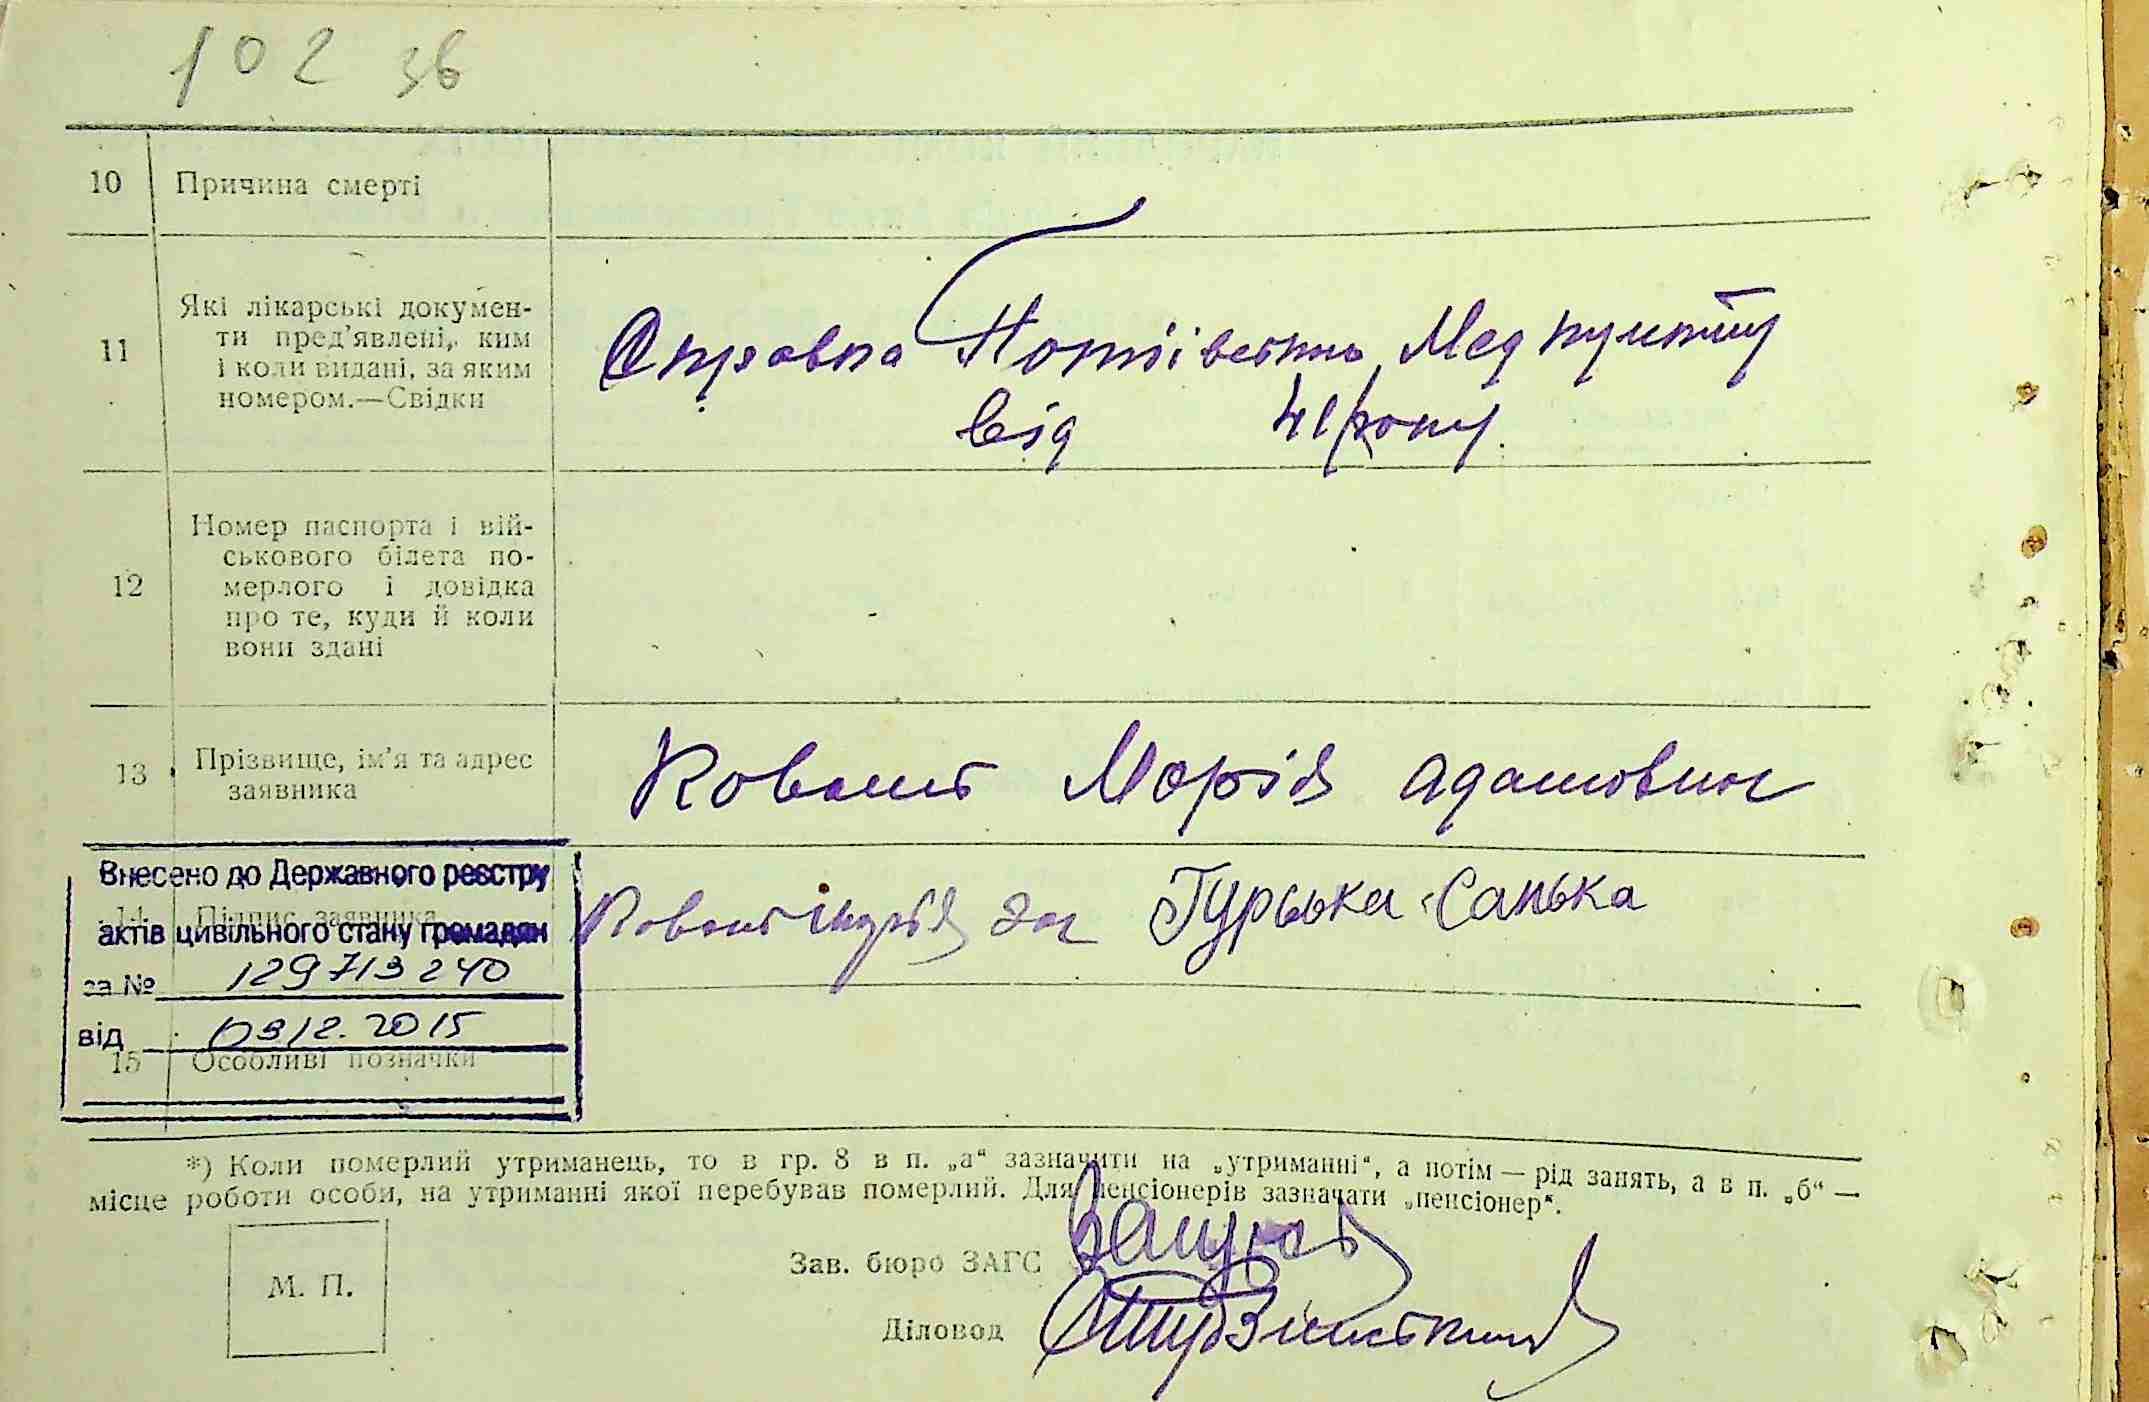 102 зв
10 Причина смерті
11 Які лікарські докумен-
ти пред'явлені, ким
і коли видані, за яким
номером.—Свідки
Справка Медпункту
від 41 року.
12 Номер паспорта і вій-
ськового білета по-
мерлого і довідка
про те, куди й коли
вони здані
13 Прізвище, ім'я та адрес
заявника
Марія Адамовна
14 Підпис заявника
за Гурська Санька
Внесено до Державного реєстру
актів цивільного стану громадян
за № 129713240
від 03 12. 2015
15 Особливі позначки
*) Коли померлий утриманець, то в гр. 8 в п. „а“ зазначити на „утриманні“, а потім — рід занять, а в п. „б“ —
місце роботи особи, на утриманні якої перебував померлий. Для пенсіонерів зазначати „пенсіонер“.
М. П.
Зав. бюро ЗАГС
Діловод